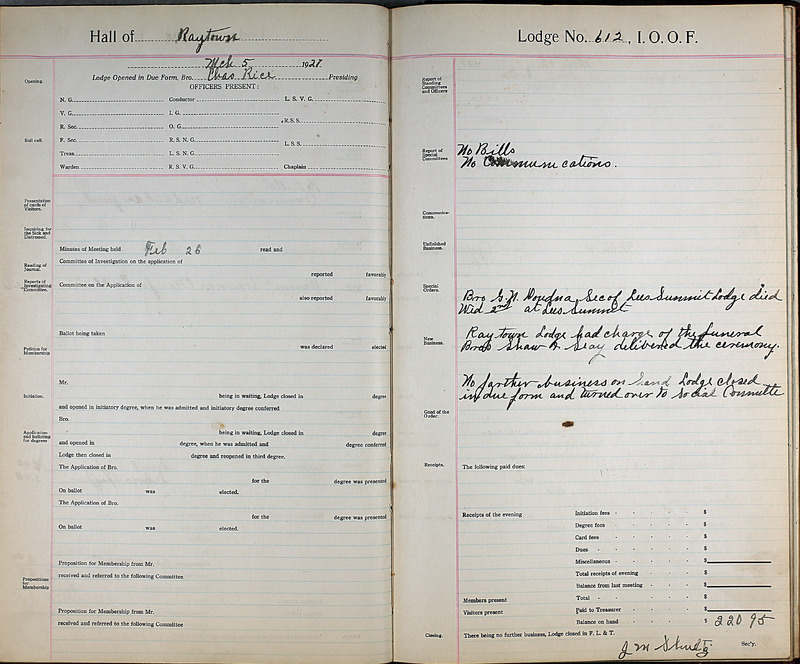 Hall of Raytown
Mch 5 1927
Lodge Opened in Due Form, Bro. Chas Rice Presiding
OFFICERS PRESENT:
N. G. Conductor L. S. V. G.
V. G. I. G. R. S. S.
R. Sec. O. G.
F. Sec. R. S. N. G. L. S. S.
Treas. L. S. N. G.
Warden R. S. V. G. Chaplain
Opening.
Roll call
Presentation of cards of Visitors.
Inquiring for the Sick and Distressed.
Reading of Journal.
Reports of Investigating Committee.
Petition for Membership
Initiation.
Application and balloting for degrees
Propositions for Membership
Minutes of Meeting held Feb 26 read and
Committee of Investigation on the application of
reported favorably
Committee on the Application of
also reported favorably
Ballot being taken
was declared elected
Mr.
being in waiting, Lodge closed in degree
and opened in initiatory degree, when he was admitted and initiatory degree conferred
Bro.
being in waiting, Lodge closed in degree
and opened in degree, when he was admitted and degree conferred
Lodge then closed in degree and reopened in third degree.
The Application of Bro.
for the degree was presented
On ballot was elected.
The Application of Bro.
for the degree was presented
On ballot was elected.
Proposition for Membership from Mr.
received and referred to the following Committee
Proposition for Membership from Mr.
received and referred to the following Committee
Lodge No. 612, I. O. O. F.
Report of Standing Committees and Officers
Report of Special Committees
No Bills
No Communications.
Communications.
Unfinished Business.
Special Orders.
Bro G. W. Sec of Lees Summit Lodge died
Wed 2nd at Lees Summit
New Business.
Raytown Lodge had charge of the funeral
Bros Shaw & Seay delivered the ceremony.
No farther business on hand Lodge closed
in due form and turned over to Social Committe
Good of the Order.
Receipts.
The following paid dues:
Receipts of the evening Initiation fees $
Degree fees $
Card fees $
Dues $
Miscellaneous $
Total receipts of evening $
Balance from last meeting $
Members present Total $
Visitors present Paid to Treasurer $
Balance on hand $ 220 95
Closing. There being no further business, Lodge closed in F. L. & T.
J M Shultz Sec'y.